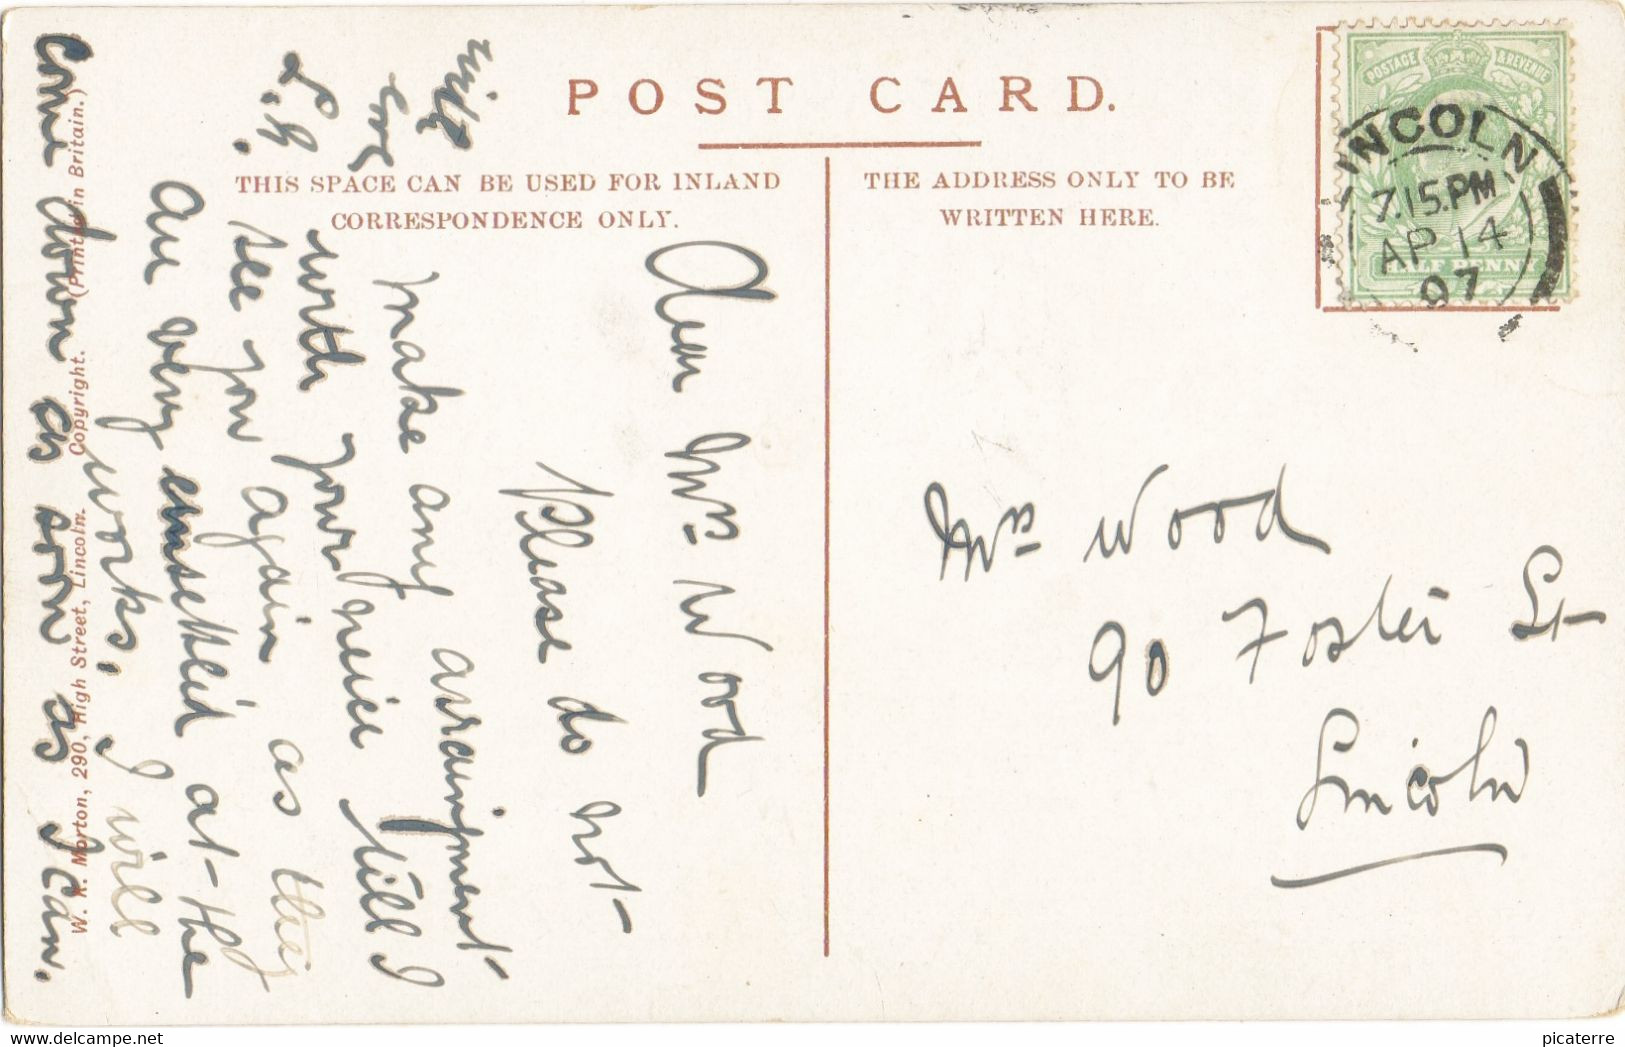 POST CARD.
THIS SPACE CAN BE USED FOR INLAND
CORRESPONDENCE ONLY.
THE ADDRESS ONLY TO BE
WRITTEN HERE.
POSTAGE & REVENUE
HALF PENNY
LINCOLN
7.15.PM
AP 14
07
Mrs Wood
90 Foster St
Lincoln
Dear Mrs Wood
Please do not
make any arraingment
with your neice till I
see you again as they
are very unsettled at the
works, I will
come down as soon as I can.
with
love
L.H.
W. K. Morton, 290, High Street, Lincoln. Copyright. (Printed in Britain.)
delcampe.net
picaterre